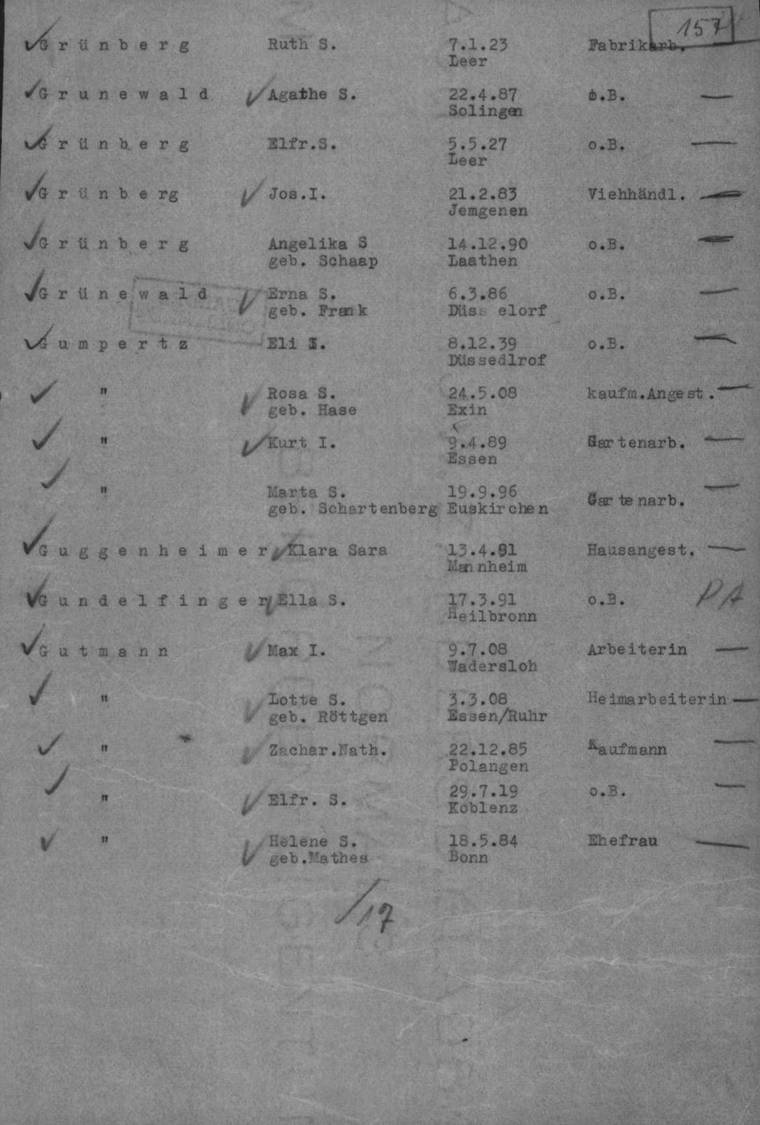 157
Grünberg Ruth S. 7.1.23 Fabrikarb.
Leer
Grunewald Agathe S. 22.4.87 o.B.
Solingen
Grünberg Elfr.S. 5.5.27 o.B.
Leer
Grünberg Jos.I. 21.2.83 Viehhändl.
Jemgenen
Grünberg Angelika S 14.12.90 o.B.
geb. Schaap Laathen
Grünewald Erna S. 6.3.86 o.B.
geb. Frank Düss elorf
Gumpertz Eli I. 8.12.39 o.B.
Düssedlrof
" Rosa S. 24.5.08 kaufm.Angest.
geb. Hase Exin
" Kurt I. 9.4.89 Gartenarb.
Essen
" Marta S. 19.9.96 Gartenarb.
geb. Schartenberg Euskirchen
Guggenheimer Klara Sara 13.4.91 Hausangest.
Mannheim
Gundelfinger Ella S. 17.3.91 o.B. PA
Heilbronn
Gutmann Max I. 9.7.08 Arbeiterin
Wadersloh
" Lotte S. 3.3.08 Heimarbeiterin
geb. Röttgen Essen/Ruhr
" Zachar.Nath. 22.12.85 Kaufmann
Polangen
" Elfr. S. 29.7.19 o.B.
Koblenz
" Helene S. 18.5.84 Ehefrau
geb.Mathes Bonn
/17